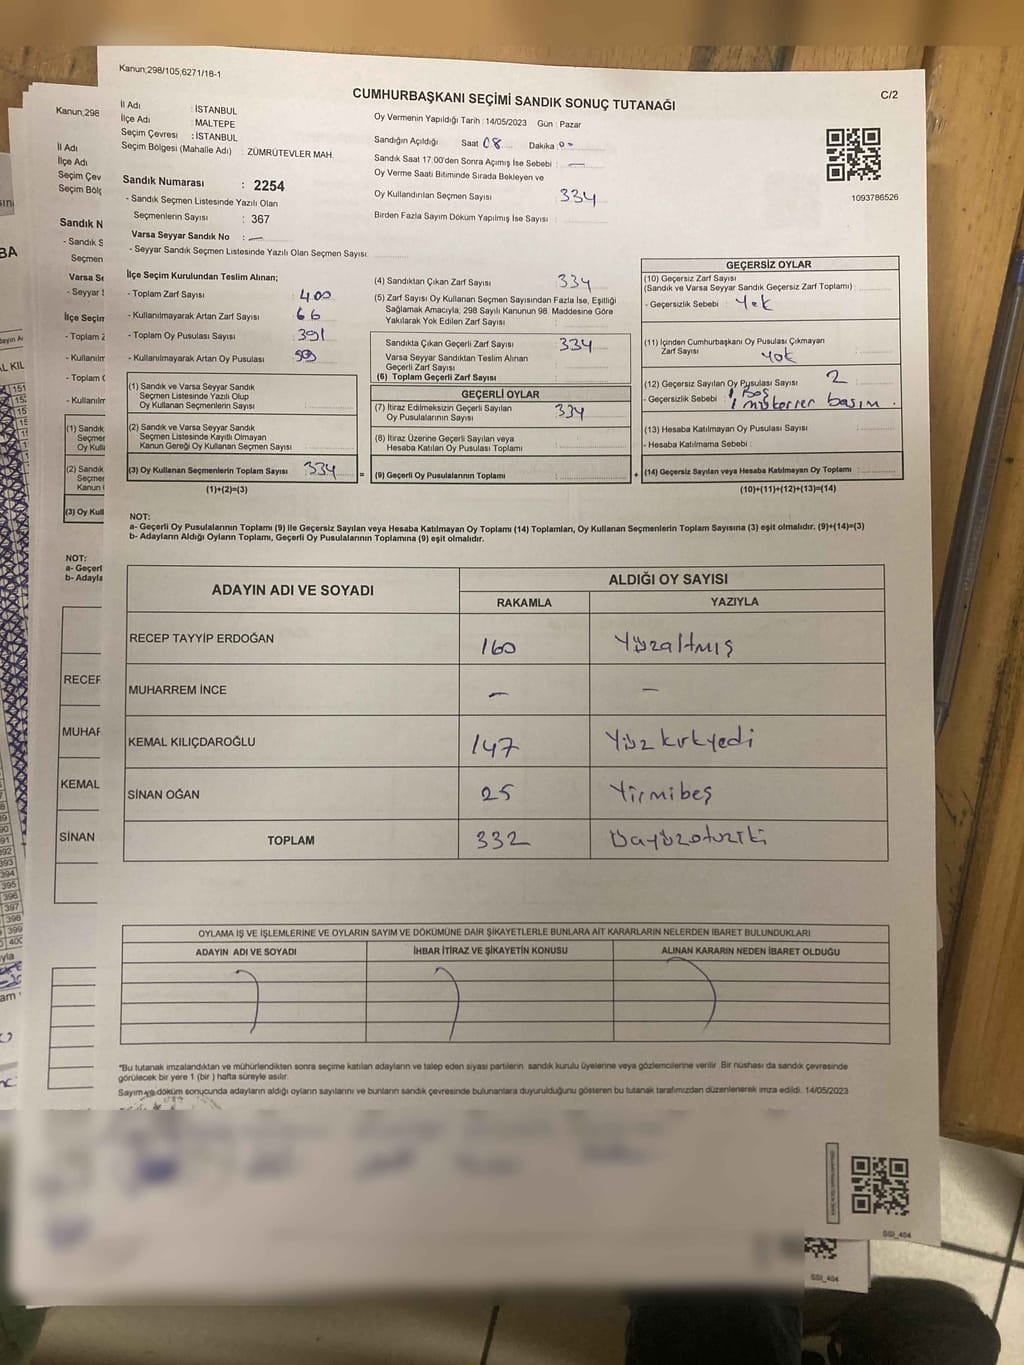 Kanun;298/105;6271/18-1
CUMHURBAŞKANI SEÇİMİ SANDIK SONUÇ TUTANAĞI
C/2
İl Adı : İSTANBUL
İlçe Adı : MALTEPE
Seçim Çevresi : İSTANBUL
Seçim Bölgesi (Mahalle Adı) : ZÜMRÜTEVLER MAH.
Sandık Numarası : 2254
- Sandık Seçmen Listesinde Yazılı Olan
Seçmenlerin Sayısı : 367
Varsa Seyyar Sandık No : —
- Seyyar Sandık Seçmen Listesinde Yazılı Olan Seçmen Sayısı:
Oy Vermenin Yapıldığı Tarih : 14/05/2023 Gün : Pazar
Sandığın Açıldığı Saat 08 Dakika
Sandık Saat 17:00'den Sonra Açımış İse Sebebi : —
Oy Verme Saati Bitiminde Sırada Bekleyen ve
Oy Kullandırılan Seçmen Sayısı 334
Birden Fazla Sayım Döküm Yapılmış İse Sayısı :
1093786526
İlçe Seçim Kurulundan Teslim Alınan;
- Toplam Zarf Sayısı : 400
- Kullanılmayarak Artan Zarf Sayısı : 66
- Toplam Oy Pusulası Sayısı : 391
- Kullanılmayarak Artan Oy Pusulası :
(1) Sandık ve Varsa Seyyar Sandık
Seçmen Listesinde Yazılı Olup
Oy Kullanan Seçmenlerin Sayısı :
(2) Sandık ve Varsa Seyyar Sandık
Seçmen Listesinde Kayıtlı Olmayan
Kanun Gereği Oy Kullanan Seçmen Sayısı :
(3) Oy Kullanan Seçmenlerin Toplam Sayısı : 334
(1)+(2)=(3)
=
(4) Sandıktan Çıkan Zarf Sayısı : 334
(5) Zarf Sayısı Oy Kullanan Seçmen Sayısından Fazla İse, Eşitliği
Sağlamak Amacıyla; 298 Sayılı Kanunun 98. Maddesine Göre
Yakılarak Yok Edilen Zarf Sayısı :
Sandıkta Çıkan Geçerli Zarf Sayısı : 334
Varsa Seyyar Sandıktan Teslim Alınan
Geçerli Zarf Sayısı :
(6) Toplam Geçerli Zarf Sayısı :
GEÇERLİ OYLAR
(7) İtiraz Edilmeksizin Geçerli Sayılan
Oy Pusulalarının Sayısı : 334
(8) İtiraz Üzerine Geçerli Sayılan veya
Hesaba Katılan Oy Pusulası Toplamı :
(9) Geçerli Oy Pusulalarının Toplamı :
+
GEÇERSİZ OYLAR
(10) Geçersiz Zarf Sayısı
(Sandık ve Varsa Seyyar Sandık Geçersiz Zarf Toplamı) :
- Geçersizlik Sebebi : Yok
(11) İçinden Cumhurbaşkanı Oy Pusulası Çıkmayan
Zarf Sayısı Yok
(12) Geçersiz Sayılan Oy Pusulası Sayısı : 2
- Geçersizlik Sebebi : 1 Boş
1 mükerrer basım.
(13) Hesaba Katılmayan Oy Pusulası Sayısı :
- Hesaba Katılmama Sebebi :
(14) Geçersiz Sayılan veya Hesaba Katılmayan Oy Toplamı :
(10)+(11)+(12)+(13)=(14)
NOT:
a- Geçerli Oy Pusulalarının Toplamı (9) ile Geçersiz Sayılan veya Hesaba Katılmayan Oy Toplamı (14) Toplamları, Oy Kullanan Seçmenlerin Toplam Sayısına (3) eşit olmalıdır. (9)+(14)=(3)
b- Adayların Aldığı Oyların Toplamı, Geçerli Oy Pusulalarının Toplamına (9) eşit olmalıdır.
ADAYIN ADI VE SOYADI
ALDIĞI OY SAYISI
RAKAMLA YAZIYLA
RECEP TAYYİP ERDOĞAN 160 Yüzaltmış
MUHARREM İNCE — —
KEMAL KILIÇDAROĞLU 147 Yüz kırkyedi
SİNAN OĞAN 25 Yirmibeş
TOPLAM 332 Üçyüzotuziki
OYLAMA İŞ VE İŞLEMLERİNE VE OYLARIN SAYIM VE DÖKÜMÜNE DAİR ŞİKAYETLERLE BUNLARA AİT KARARLARIN NELERDEN İBARET BULUNDUKLARI
ADAYIN ADI VE SOYADI İHBAR İTİRAZ VE ŞİKAYETİN KONUSU ALINAN KARARIN NEDEN İBARET OLDUĞU
"Bu tutanak imzalandıktan ve mühürlendikten sonra seçime katılan adayların ve talep eden siyasi partilerin sandık kurulu üyelerine veya gözlemcilerine verilir. Bir nüshası da sandık çevresinde
görülecek bir yere 1 (bir) hafta süreyle asılır.
Sayım ve döküm sonucunda adayların aldığı oyların sayılarını ve bunların sandık çevresinde bulunanlara duyurulduğunu gösteren bu tutanak tarafımızdan düzenlenerek imza edildi. 14/05/2023
SSI_404
SSI_404
Kanun;298
İl Adı
İlçe Adı
Seçim Çev
Seçim Bölg
Sandık N
- Sandık S
Seçmen
Varsa Se
- Seyyar S
İlçe Seçim
- Toplam Z
- Kullanılm
- Toplam O
- Kullanılm
(1) Sandık
Seçmen
Oy Kulla
(2) Sandık
Seçmen
Kanun G
(3) Oy Kull
NOT:
a- Geçerl
b- Adayla
RECEP
MUHAR
KEMAL
SİNAN